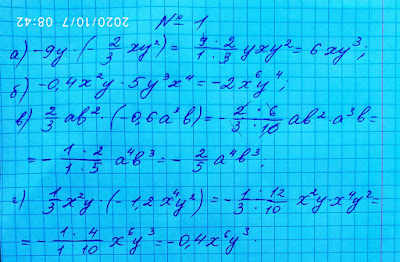 2020/10/7 08:42
№ 1
а) -9y · (-2/3 xy²) = 9 · 2/1 · 3 yxy² = 6xy³;
б) -0,4x²y · 5y³x⁴ = -2x⁶y⁴;
в) 2/3 ab² · (-0,6a³b) = -2 · 6/3 · 10 ab² · a³b =
= -1 · 2/1 · 5 a⁴b³ = -2/5 a⁴b³;
г) 1/3 x²y · (-1,2x⁴y²) = -1 · 12/3 · 10 x²y · x⁴y² =
= -1 · 4/1 · 10 x⁶y³ = -0,4x⁶y³.